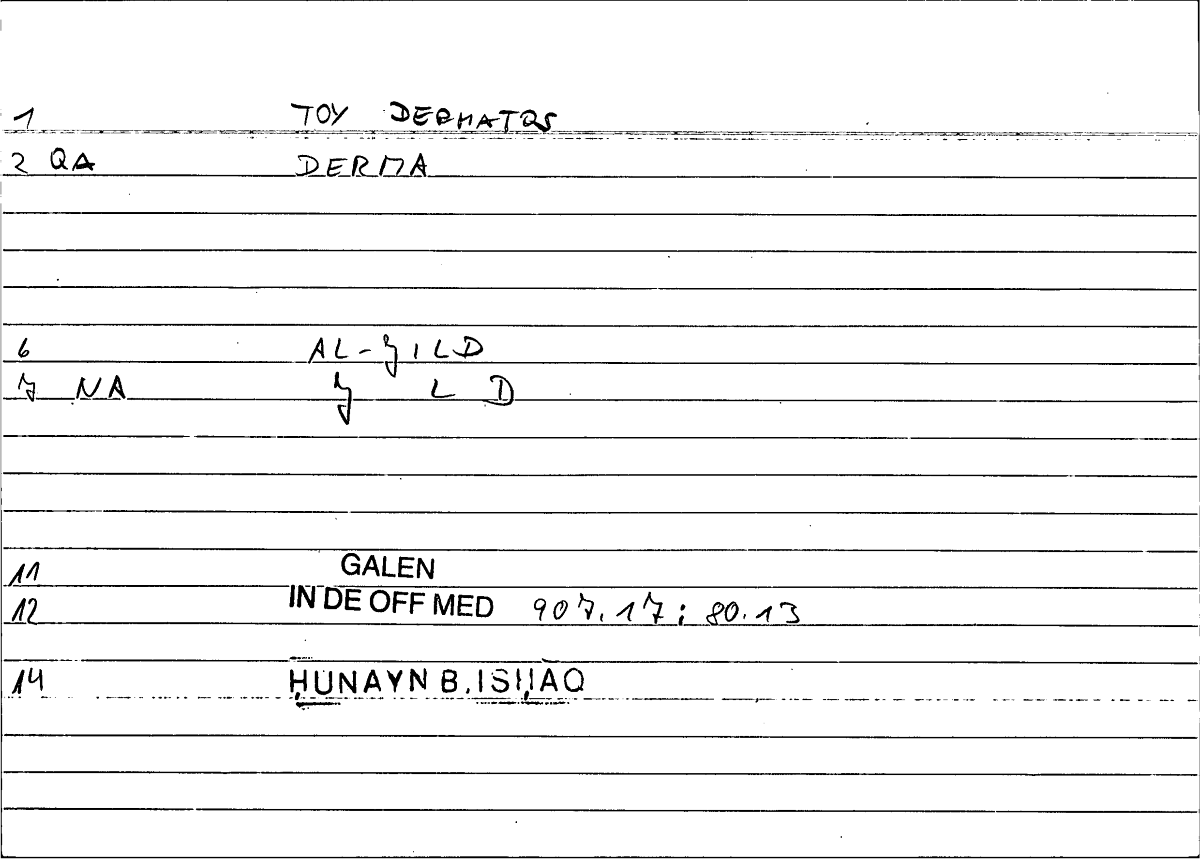 1 TOY DERMATOS
2 QA DERMA
6 AL-JILD
7 NA J L D
11 GALEN
12 IN DE OFF MED 907.17; 80.13
14 ḤUNAYN B. ISḤĀQ